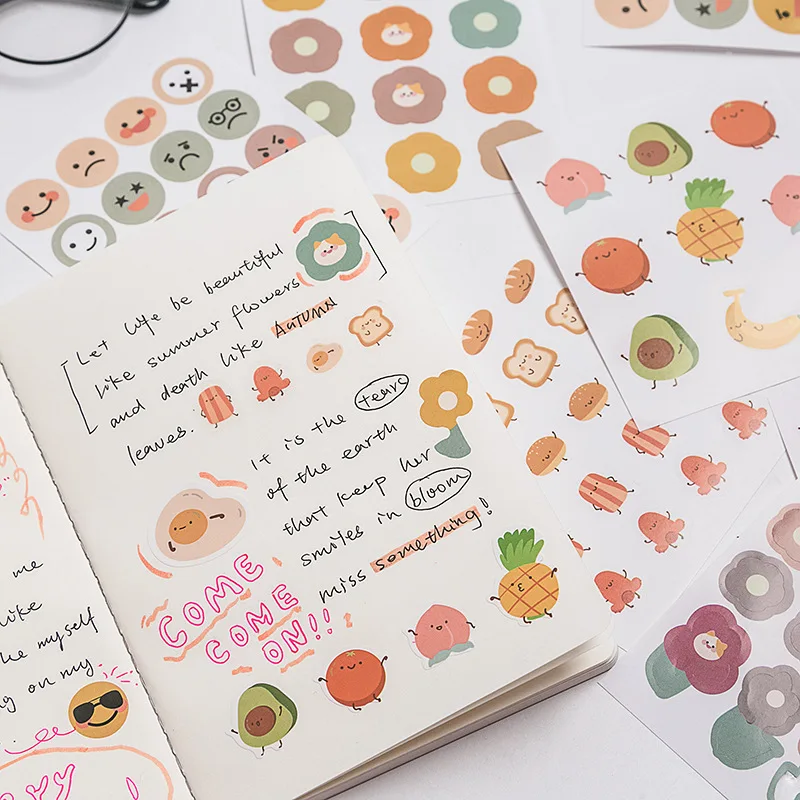 me
like
he myself
g on my
Let life be beautiful
like summer flowers
and death like AUTUMN
leaves.
It is the tears
of the earth
that keep her
smiles in bloom
miss something!
COME
COME
ON!!